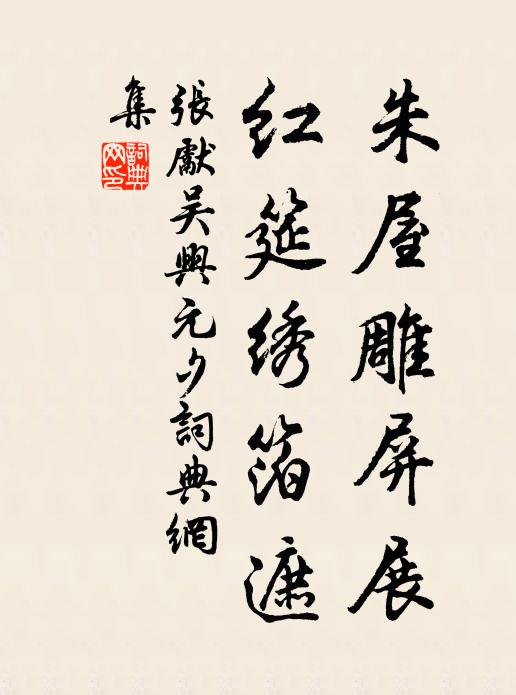 朱屋雕屏展
红筵绣箔遮
張獻吴興元夕詞典網
集
詞典
网印